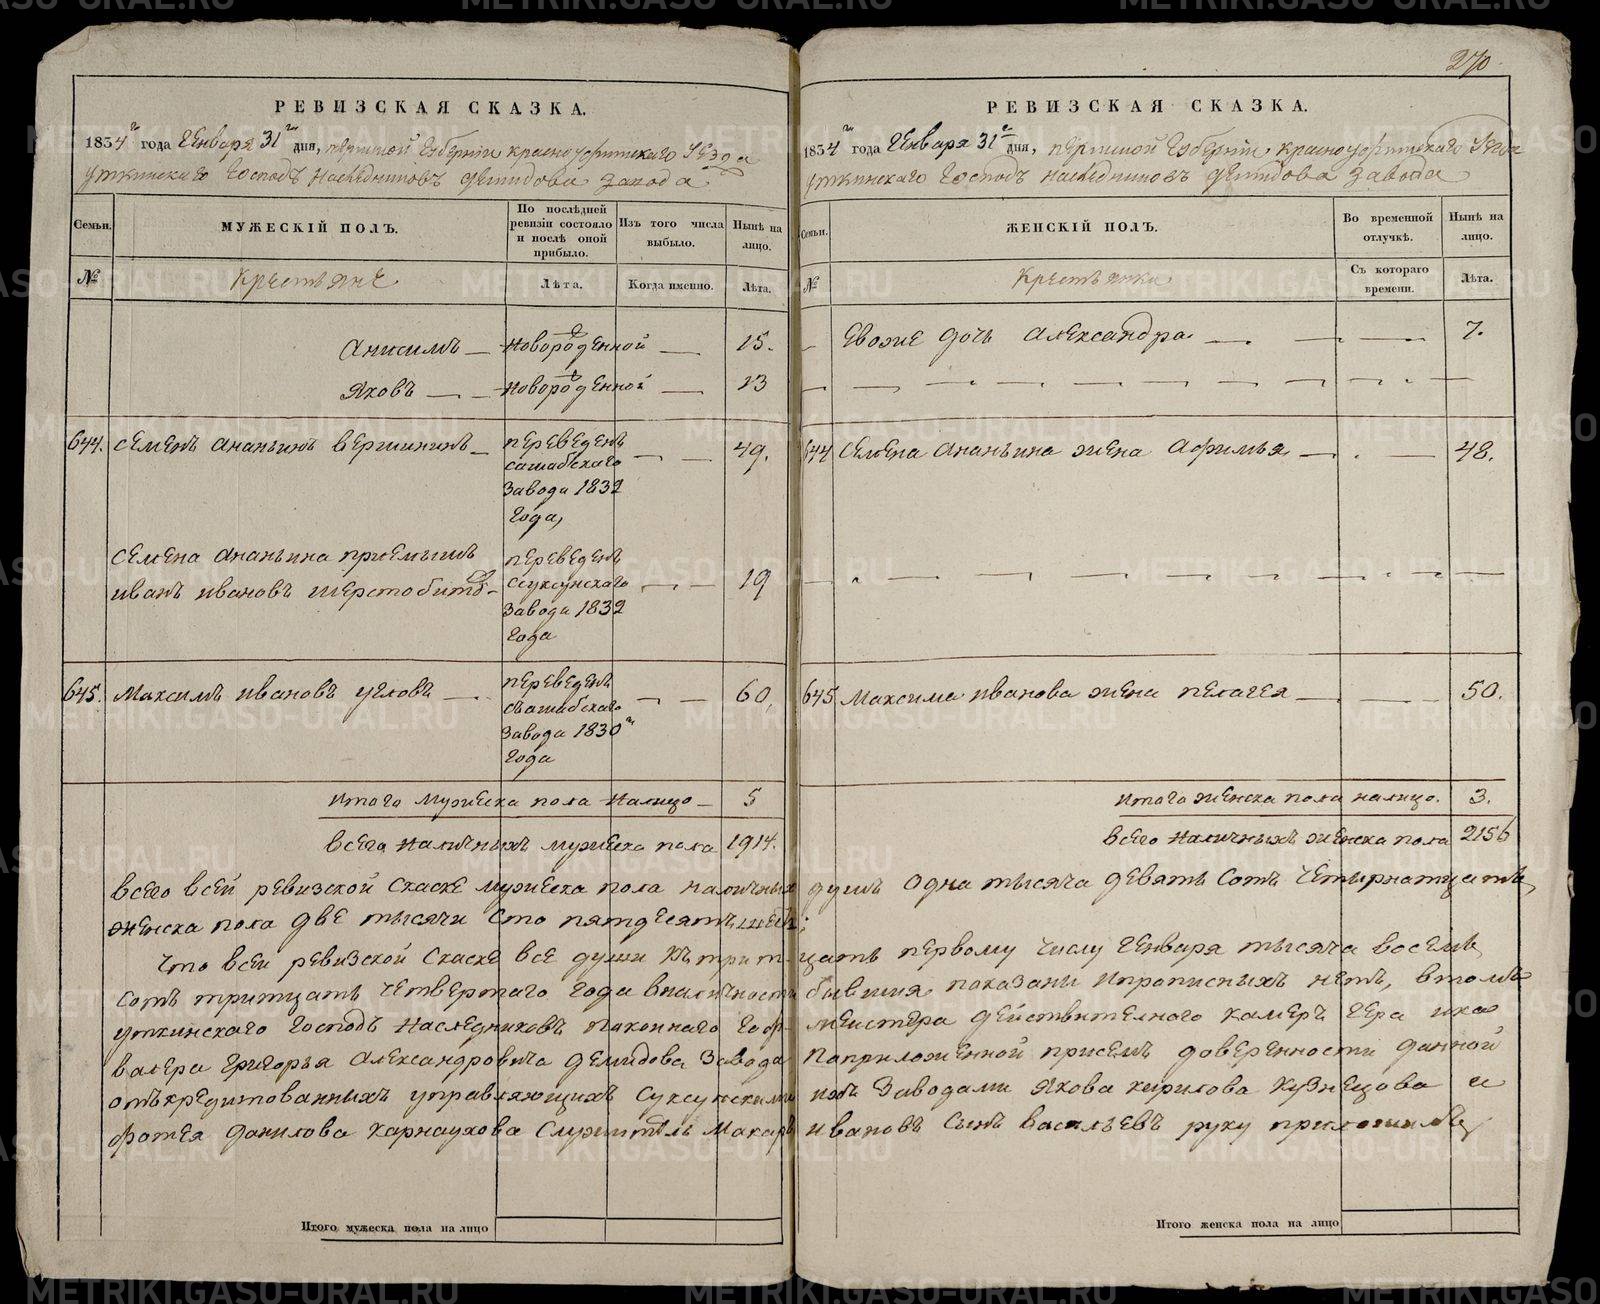 270.
РЕВИЗСКАЯ СКАЗКА.
1834го года Генваря 31го дня, пермской губернiи красноуфимскаго уезда
уткинскаго Господъ наследниковъ демидова завода
Семьи.
МУЖЕСКIЙ ПОЛЪ.
По послѣдней ревизiи состояло и послѣ оной прибыло.
Изъ того числа выбыло.
Нынѣ на лицо.
№
Крестьяне
Лѣта.
Когда именно.
Лѣта.
Анисимъ — Новорожденной — 15.
Яковъ — Новорожденной — 13
644. Семенъ Ананьинъ Вершининъ — 49.
переведенъ
сашабскаго
завода 1832
года,
Семена Ананьина приемышъ
иванъ ивановъ шерстобитовъ — 19
переведенъ
ссуксунскаго
завода 1832
года
645. Максимъ ивановъ угловъ — 60.
переведенъ
съашабскаго
завода 1830го
года
итого мужеска пола налицо — 5
всего наличныхъ мужеска пола 1914.
РЕВИЗСКАЯ СКАЗКА.
1834го года Генваря 31го дня, пермской губернiи красноуфимскаго уезда
уткинскаго Господъ наследниковъ демидова завода
Семьи.
ЖЕНСКIЙ ПОЛЪ.
Во временной отлучкѣ.
Нынѣ на лицо.
№
Крестьянки
Съ котораго времени.
Лѣта.
Евоже дочь Александра. — 7.
644 Семена Ананьина жена Афимья — 48.
645 Максима Иванова жена пелагея — 50.
итого женска пола налицо. 3.
всего наличныхъ женска пола 2156
всего всей ревизской скаске мужеска пола наличныхъ душъ одна тысяча девять сотъ четырнатцать,
женска пола две тысячи сто пятдесятъ шесть;
что всей ревизской скаске все души къ тритцать первому числу генваря тысяча восемь
сотъ тритцать четвертаго года вналичности бывшия показаны ипрописныхъ нетъ, втомъ
уткинскаго Господъ наследниковъ покойнаго гофмейстера действителнаго камергера ика
валера григорья Александровича демидова завода поприложенной присемъ доверенности данной
отъкредитованныхъ управляющихъ суксунскими заводами якова кирилова кузнецова и
фотея данилова карнаухова служитель Макаръ ивановъ сынъ васильевъ руку приложилъ
Итого мужеска пола на лицо
Итого женска пола на лицо
METRIKI.GASO-URAL.RU